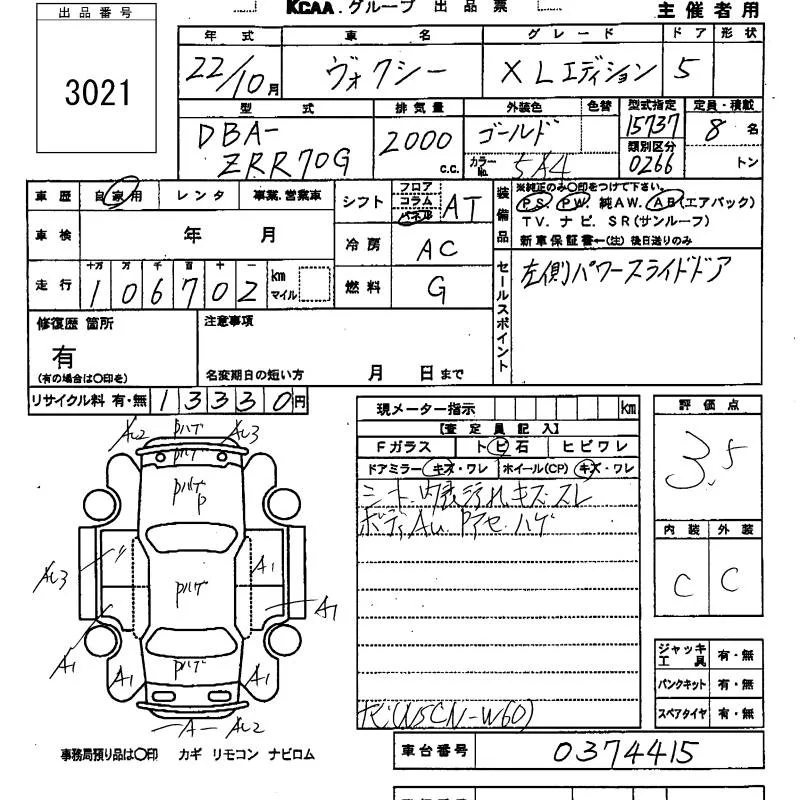 出品番号
3021
KCAA.グループ 出品票
主催者用
年式 車名 グレード ドア 形状
22/10月 ヴォクシー XLエディション 5
型式 排気量 外装色 色替 型式指定 定員・積載
DBA-ZRR70G 2000 c.c. ゴールド 15737 8名
カラーNo. 5A4 類別区分 0266 トン
車歴 自家用 レンタ 事業.営業車
車検 年 月
走行 十万 万 千 百 十 一
106702 km マイル
シフト フロア コラム パネル AT
冷房 AC
燃料 G
装備品
※純正のみ〇印をつけて下さい。
PS PW 純AW. AB(エアバック)
TV. ナビ. SR(サンルーフ)
新車保証書←(注) 後日送りのみ
セールスポイント
左側パワースライドドア
修復歴 箇所
有
(有の場合は〇印を)
注意事項
名変期日の短い方 月 日まで
リサイクル料 有・無 13330円
現メーター指示 km
【査定員記入】
Fガラス トビ石 ヒビワレ
ドアミラー キズ・ワレ ホイール(CP) キズ・ワレ
シート、内装汚れ キズ・スレ
ボディAU. Pアセ・ハゲ
ナビ(NSCN-W60)
評価点
3.5
内装 外装
C C
ジャッキ工具 有・無
パンクキット 有・無
スペアタイヤ 有・無
AU2 Pハゲ AU3
Pハゲ
Pハゲ
P
AU3 A1
Pハゲ
A1
A1
A1 Pハゲ A1
A AU2
事務局預り品は〇印 カギ リモコン ナビロム
車台番号 0374415